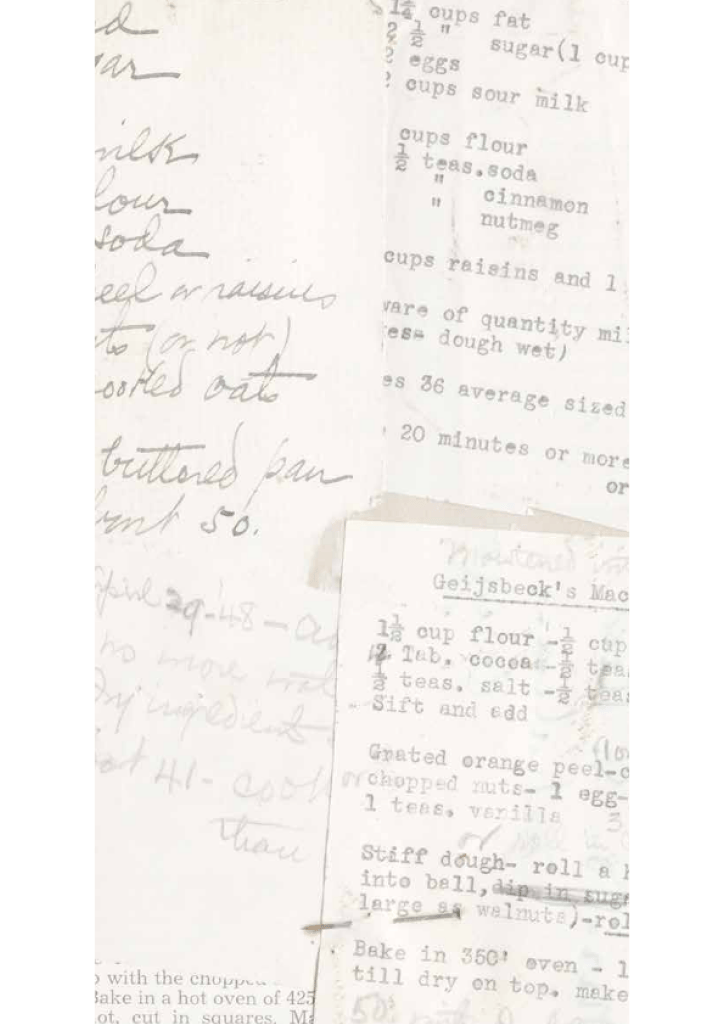 d
ar
milk
lour
soda
eel or raisins
ts (or not)
ooked oats
buttered pan
50.
April 29-48 -
no more
Dry ingredient
41- cook
than
with the chopped
Bake in a hot oven of 425
ot, cut in squares. Ma
1¼ cups fat
2 ½ " sugar(1 cup
2 eggs
2 cups sour milk
cups flour
½ teas.soda
" cinnamon
" nutmeg
cups raisins and 1
ware of quantity mil
es- dough wet)
es 36 average sized
20 minutes or more
or
Moistened
Geijsbeck's Mac
1½ cup flour -½ cup
Tab. cocoa -½ tea
½ teas. salt -½ teas
Sift and add
Grated orange peel-
or chopped nuts- 1 egg-
1 teas. vanilla 3
or roll in
Stiff dough- roll a h
into ball, dip in suga
large as walnuts)-rol
Bake in 350° oven - 1
till dry on top. make
50